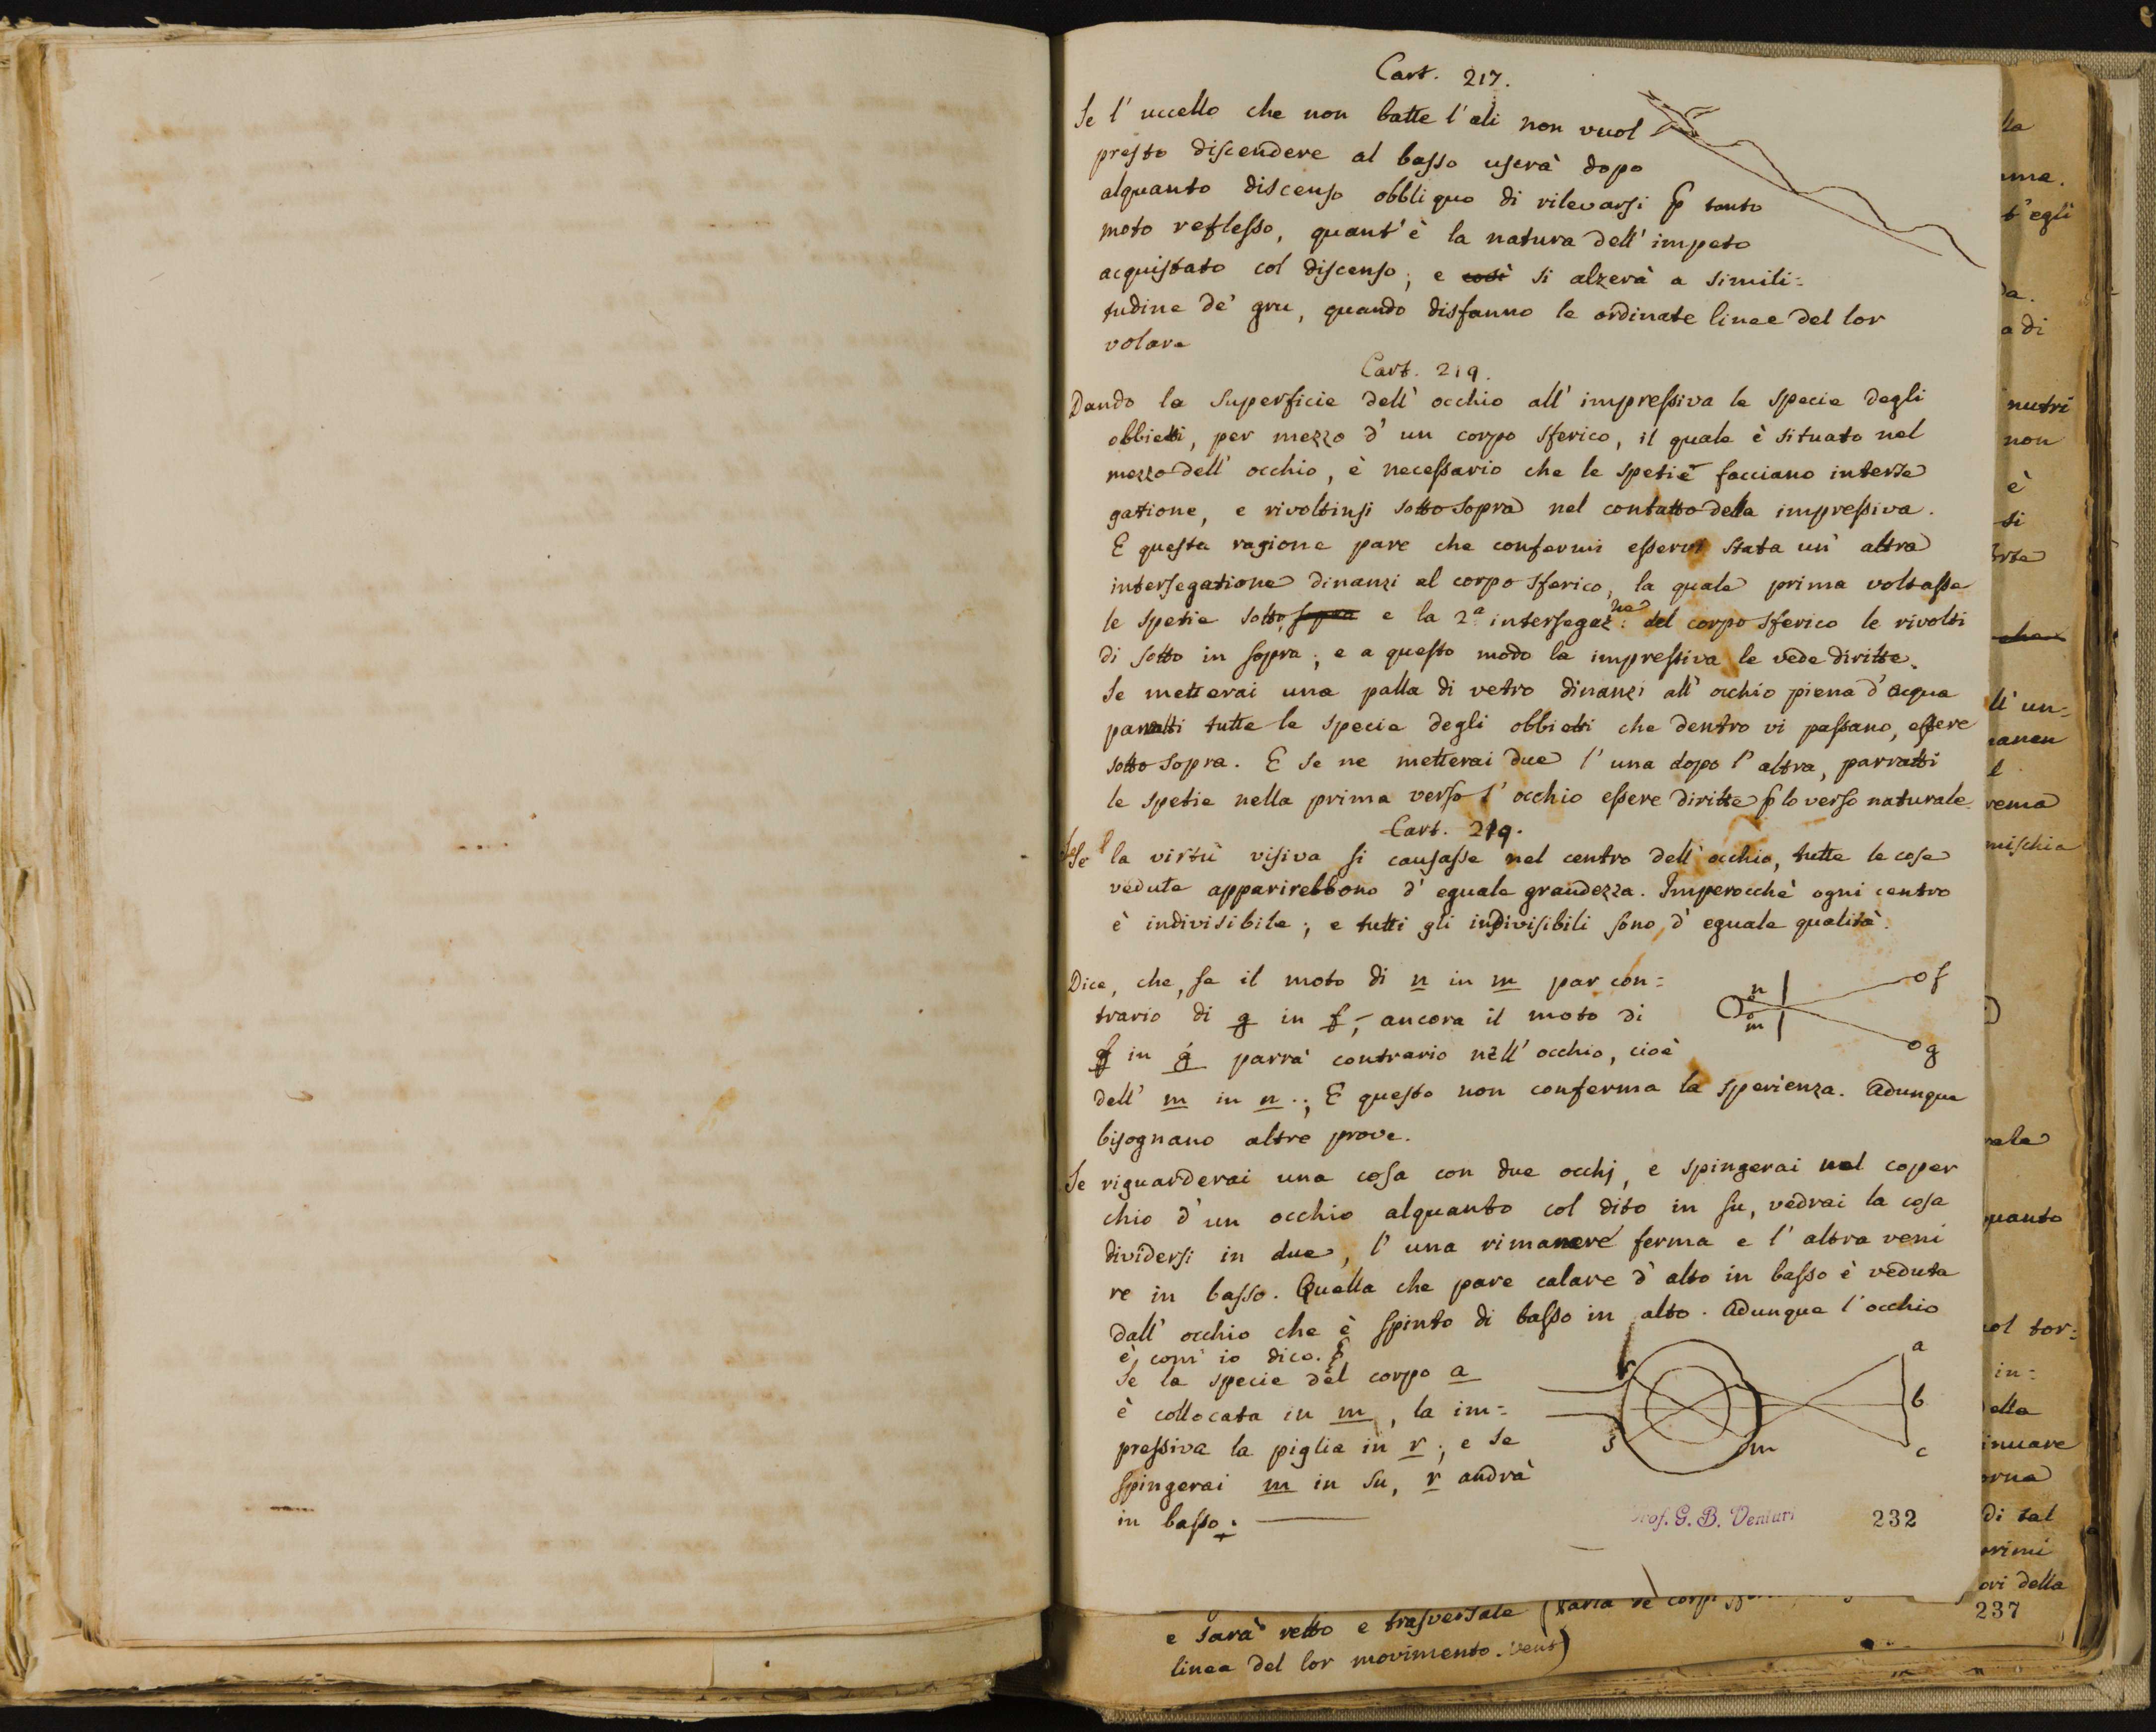 Cart. 217.
Se l' uccello che non batte l' ali non vuol
presto discendere al basso userà dopo
alquanto discenso obbliquo di rilevarsi p tanto
moto reflesso, quant' è la natura dell' impeto
acquistato col discenso; e così si alzerà a simili=
tudine de' gru, quando disfanno le ordinate linee del lor
volare
Cart. 219.
Dando la superficie dell' occhio all' impressiva le specie degli
obbietti, per mezzo d' un corpo sferico, il quale è situato nel
mezzo dell' occhio, è necessario che le spetie facciano interse
gatione, e rivoltinsi sotto sopra nel contatto della impressiva.
E questa ragione pare che confermi esservi stata un' altra
intersegatione dinanzi al corpo sferico, la quale prima voltasse
le spetie sotto sopra e la 2ª intersegaz:ne del corpo sferico le rivolti
di sotto in sopra; e a questo modo la impressiva le vede diritte.
Se metterai una palla di vetro dinanzi all' occhio piena d' acqua
parratti tutte le specie degli obbietti che dentro vi passano, essere
sotto sopra. E se ne metterai due l' una dopo l' altra, parratti
le spetie nella prima verso l' occhio essere diritte p lo verso naturale.
Cart. 219.
Se la virtù visiva si causasse nel centro dell' occhio, tutte le cose
vedute apparirebbono d' eguale grandezza. Imperocchè ogni centro
è indivisibile; e tutti gli indivisibili sono d' eguale qualità.
Dice, che, se il moto di n in m par con=
trario di g in f, ancora il moto di
f in g parrà contrario nell' occhio, cioè
dell' m in n.; E questo non conferma la sperienza. Adunque
bisognano altre prove.
n
m
f
g
Se riguarderai una cosa con due occhj, e spingerai nel coper
chio d' un occhio alquanto col dito in su, vedrai la cosa
dividersi in due, l' una rimanere ferma e l' altra veni
re in basso. Quella che pare calare d' alto in basso è veduta
dall' occhio che è spinto di basso in alto. Adunque l' occhio
è com' io dico.
Se la specie del corpo a
è collocata in m, la im=
pressiva la piglia in r; e se
spingerai m in su, r andrà
in basso.
r
s
m
a
b
c
Prof. G. B. Venturi
232
e sarà retto e trasversale
linea del lor movimento. Vent)
t' egli
a di
nutri
non
è
si
che
ll' un=
mischia
quanto
in=
di tal
237